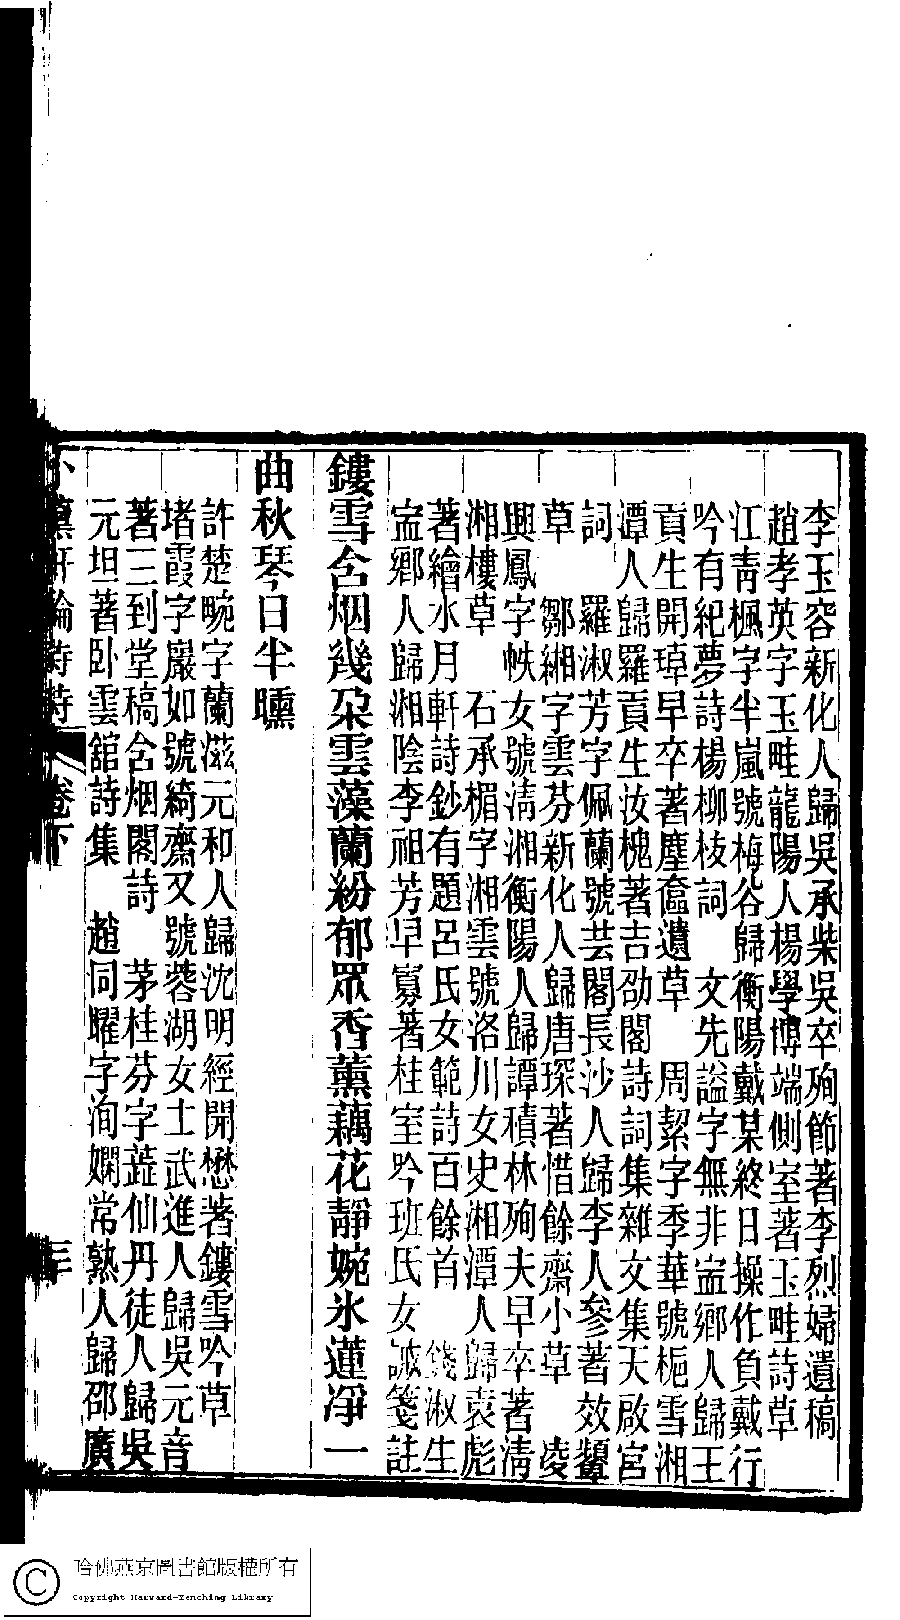 李玉容新化人歸吳承柴吳卒殉節著李烈婦遺稿
趙孝英字玉畦龍陽人楊學博端側室著玉畦詩草
江靑楓字半嵐號梅谷歸衡陽戴某終日操作負戴行
吟有紀夢詩楊柳枝詞　文先謚字無非寍鄉人歸王
貢生開琸早卒著塵奩遺草　周絜字季華號梔雪湘
潭人歸羅貢生汝槐著吉劭閣詩詞集雜文集天啟宮
詞　羅淑芳字佩蘭號芸閣長沙人歸李人參著效顰
草　鄒緗字雲芬新化人歸唐琛著惜餘齋小草　凌
興鳳字帙女號淸湘衡陽人歸譚積林殉夫早卒著淸
湘樓草　石承楣字湘雲號洛川女史湘潭人歸袁彪
著繪水月軒詩鈔有題呂氏女範詩百餘首　錢淑生
寍鄉人歸湘陰李祖芳早寡著桂室吟班氏女誡箋註
鏤雪含烟幾朶雲藻蘭紛郁眾香薰藕花靜婉氷蓮凈一
曲秋琴日半曛
許楚畹字蘭滋元和人歸沈明經開懋著鏤雪吟草
堵霞字巖如號綺齋又號蓉湖女士武進人歸吳元音
著三到堂稿含烟閣詩　茅桂芬字蕋仙丹徒人歸吳
元坦著卧雲舘詩集　趙同曜字洵嫻常熟人歸邵廣
卷下
三
哈佛燕京圖書館版權所有
Copyright Harvard-Yenching Library